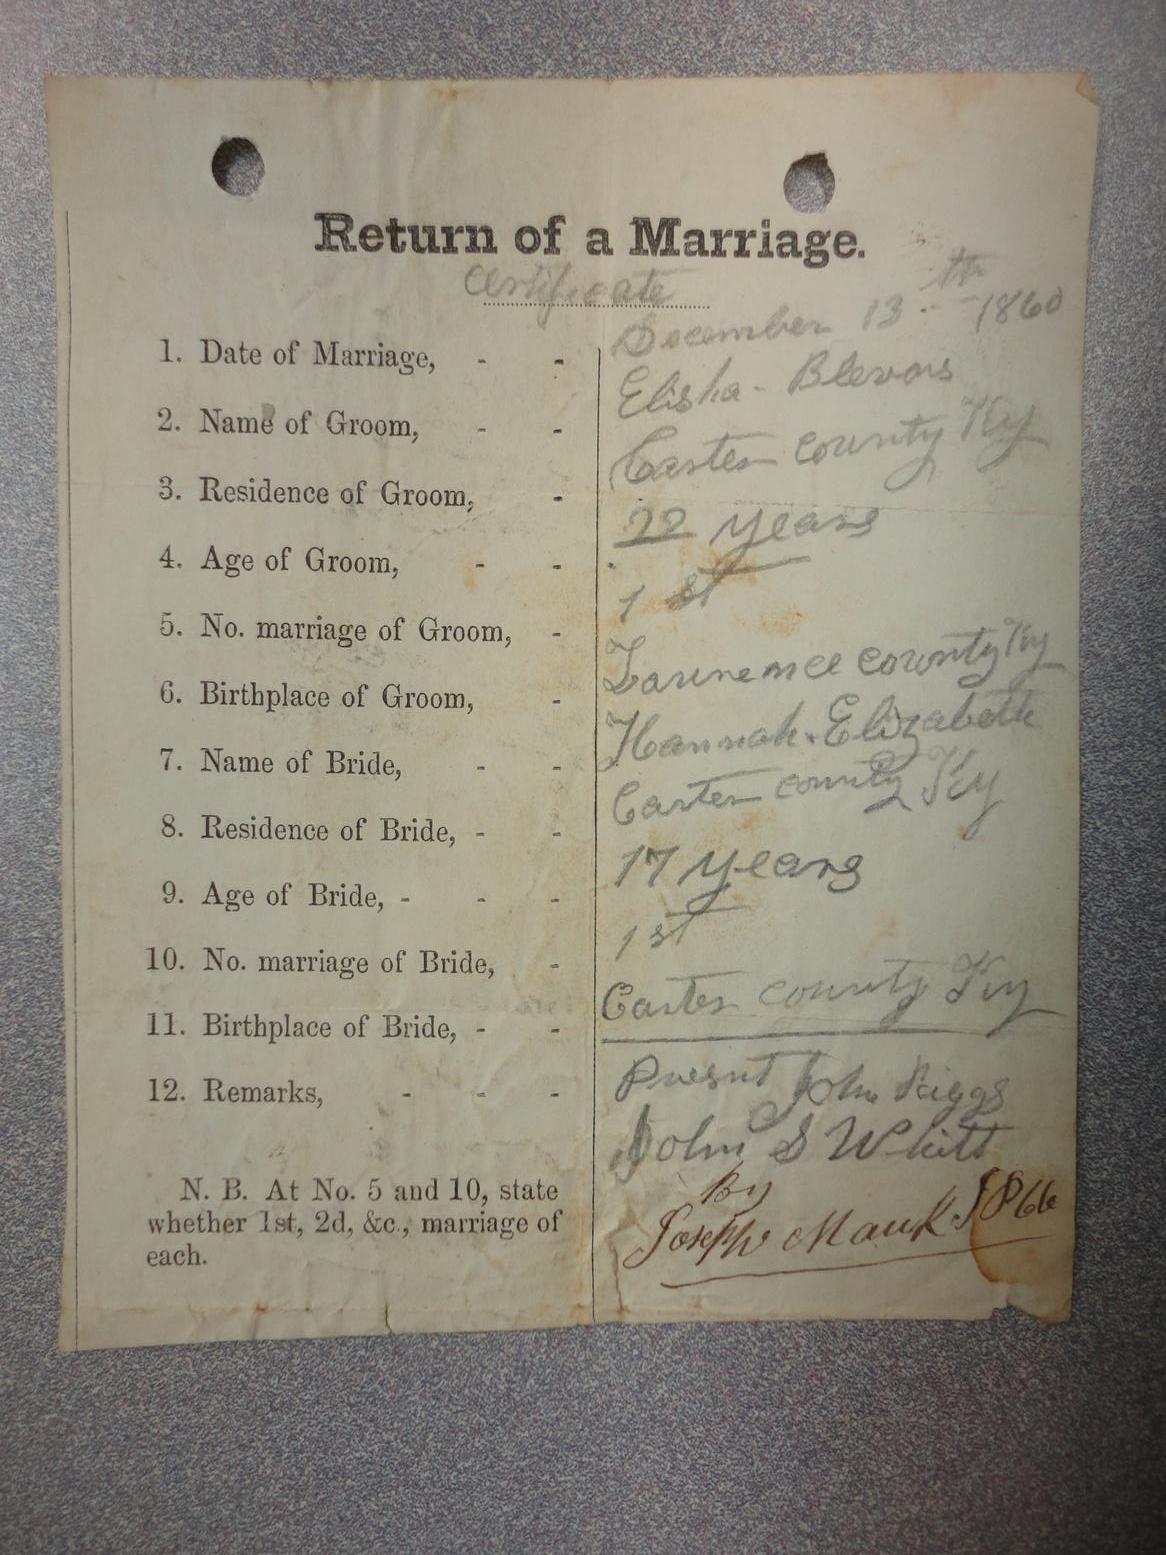 Return of a Marriage.
Certificate
1. Date of Marriage, - - December 13th 1860
2. Name of Groom, - - Elisha - Blevans
3. Residence of Groom, - Carter county Ky
4. Age of Groom, - - 22 years
5. No. marriage of Groom, - 1st
6. Birthplace of Groom, - Laurence county Ky
7. Name of Bride, - - Hannah. Elizabeth
8. Residence of Bride, - - Carter county Ky
9. Age of Bride, - - - 17 years
10. No. marriage of Bride, - 1st
11. Birthplace of Bride, - - Carter county Ky
12. Remarks, - - - Present John Riggs
John S Whitt
N. B. At No. 5 and 10, state
whether 1st, 2d, &c., marriage of
each.
By
Joseph Mauk 1866